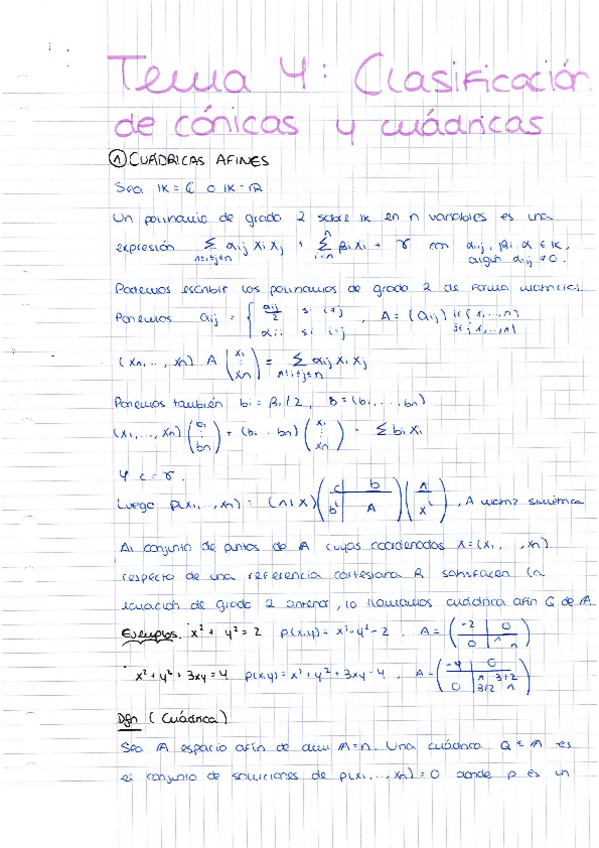 Tema 4: Clasificación
de cónicas y cuádricas
① CUÁDRICAS AFINES
Sea IK = ℂ o IK = ℝ
Un polinomio de grado 2 sobre IK en n variables es una
expresión Σ_{1≤i≤j≤n} αij xi xj + Σ_{i=1}^{n} βi xi + γ con αij, βi, α ∈ IK,
algún αij ≠ 0.
Podemos escribir los polinomios de grado 2 de forma matricial.
Ponemos aij = { αij/2 si i≠j , A = (aij) i∈{1,...,n}
αii si i=j j∈{1,...,n}
(x1, ..., xn) A (x1 ⋮ xn) = Σ_{1≤i≤j≤n} αij xi xj
Ponemos también bi = βi/2, b = (b1, ..., bn)
(x1, ..., xn) (b1 ⋮ bn) + (b1 ... bn) (x1 ⋮ xn) = Σ bi xi
Y c = γ.
Luego p(x1, ..., xn) = (1 | x) (c | b ; bᵗ | A) (1 ; xᵗ), A matriz simétrica
Al conjunto de puntos de A cuyas coordenadas x = (x1, ..., xn)
respecto de una referencia cartesiana R satisfacen la
ecuación de grado 2 anterior, lo llamamos cuádrica afín Q de A.
Ejemplos. x² + y² = 2 p(x,y) = x² + y² - 2 . A = (-2 | 0 ; 0 | 1 1)
· x² + y² + 3xy = 4 p(x,y) = x² + y² + 3xy - 4 , A = (-4 | 0 ; 0 | 1 3/2 ; 3/2 1)
Dfn (Cuádrica)
Sea A espacio afín de dim A = n. Una cuádrica Q ⊆ A es
el conjunto de soluciones de p(x1, ..., xn) = 0 donde p es un